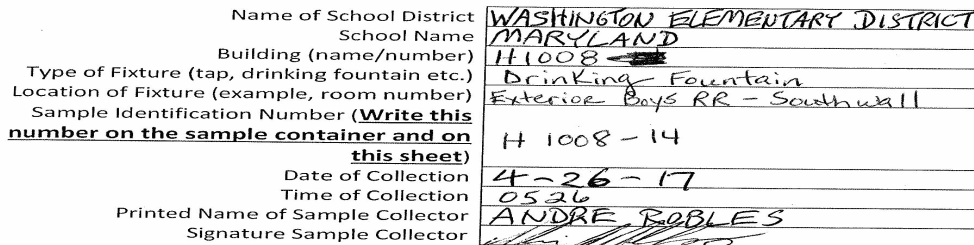 Name of School District WASHINGTON ELEMENTARY DISTRICT
School Name MARYLAND
Building (name/number) H1008
Type of Fixture (tap, drinking fountain etc.) Drinking Fountain
Location of Fixture (example, room number) Exterior Boys RR - Southwall
Sample Identification Number (Write this
number on the sample container and on H 1008-14
this sheet)
Date of Collection 4-26-17
Time of Collection 0526
Printed Name of Sample Collector ANDRE ROBLES
Signature Sample Collector